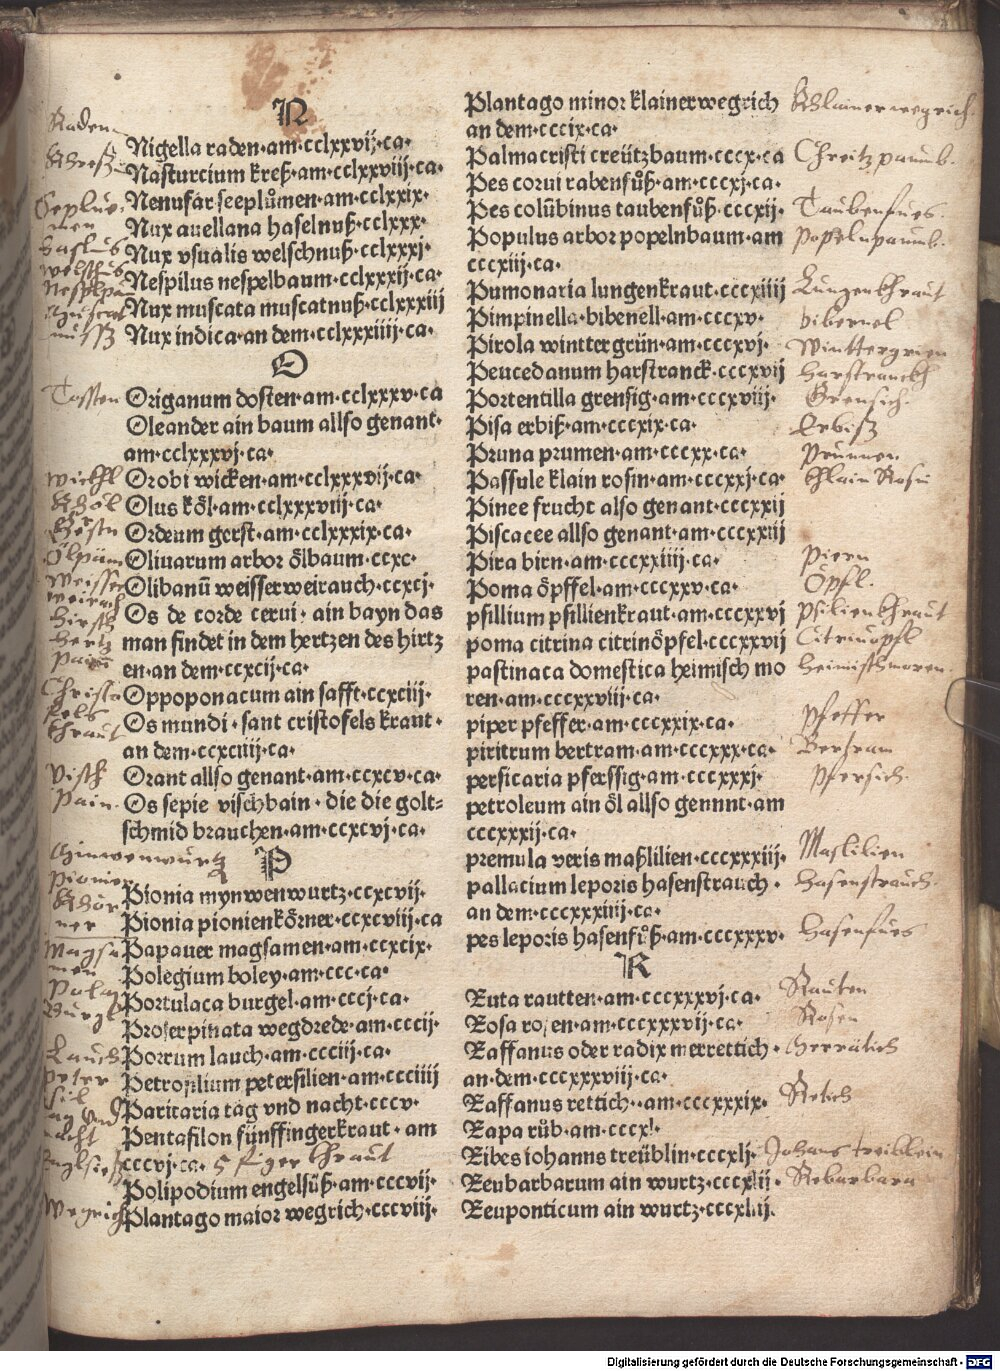 N
Nigella raden·am·cclxxvij·ca·
Nasturcium kreß·am·cclxxviij·ca·
Nenufar seeplůmen·am·cclxxix·
Nux auellana haselnuß·cclxxx·
Nux vsualis welschnuß·cclxxxj·
Nespilus nespelbaum·cclxxxij·ca·
Nux muscata muscatnuß·cclxxxiij
Nux indica·an dem·cclxxxiiij·ca·
O
Origanum dosten·am·cclxxxv·ca
Oleander ain baum allso genant·
am·cclxxxvj·ca·
Orobi wicken·am·cclxxxvij·ca·
Olus köl·am·cclxxxviij·ca·
Ordeum gerst·am·cclxxxix·ca·
Oliuarum arbor ölbaum·ccxc·
Olibanū weisser weirauch·ccxcj·
Os de corde cerui·ain bayn das
man findet in dem hertzen des hirtz
en·an dem·ccxcij·ca·
Oppoponacum ain safft·ccxciij·
Os mundi·sant cristofels kraut·
an dem·ccxciiij·ca·
Orant allso genant·am·ccxcv·ca·
Os sepie vischbain·die die golt=
schmid brauchen·am·ccxcvj·ca·
P
Pionia mynwenwurtz·ccxcvij·
Pionia pionienkörner·ccxcviij·ca
Papauer magsamen·am·ccxcix·
Polegium boley·am·ccc·ca·
Portulaca burgel·am·cccj·ca·
Proserpinata wegdrede·am·cccij·
Porrum lauch·am·ccciij·ca·
Petrosilium petersilien·am·ccciiij
Paritaria tag vnd nacht·cccv·
Pentafilon fünffingerkraut·am
cccvj·ca· 5 figer khraut
Polipodium engelsüß·am·cccvij·
Plantago maior wegrich·cccviij·
Plantago minor klainer wegrich
an dem·cccix·ca·
Palma cristi creützbaum·cccx·ca
Pes corui rabenfůß·am·cccxj·ca·
Pes colūbinus taubenfůß·cccxij·
Populus arbor popelnbaum·am
cccxiij·ca·
Pumonaria lungenkraut·cccxiiij
Pimpinella·bibenell·am·cccxv·
Pirola winttergrün·am·cccxvj·
Peucedanum harstranck·cccxvij
Portentilla grensig·am·cccxviij·
Pisa erbiß·am·cccxix·ca·
Pruna prumen·am·cccxx·ca·
Passule klain rosin·am·cccxxj·ca·
Pinee frucht also genant·cccxxij
Piscacee allso genant·am·cccxxiij
Pira birn·am·cccxxiiij·ca·
Poma öpffel·am·cccxxv·ca·
psillium psillienkraut·am·cccxxvj
poma citrina citrinöpfel·cccxxvij
pastinaca domestica heimisch mo
ren·am·cccxxviij·ca·
piper pfeffer·am·cccxxix·ca·
piritrum bertram·am·cccxxx·ca·
persicaria pferssig·am·cccxxxj·
petroleum ain öl allso gennnt·am
cccxxxij·ca·
premula veris maßlilien·cccxxxiij·
pallacium leporis hasenstrauch·
an dem·cccxxxiiij·ca·
pes leporis hasenfůß·am·cccxxxv·
R
Ruta rautten·am·cccxxxvj·ca·
Rosa rosen·am·cccxxxvij·ca·
Raffanus oder radix merrettich·
an dem·cccxxxviij·ca·
Raffanus rettich·am·cccxxxix·
Rapa růb·am·cccxl·
Ribes iohanns treüblin·cccxlj·
Reubarbarum ain wurtz·cccxlij·
Reuponticum ain wurtz·cccxliij.
Raden
Tosten
Weisser
weirach
Hirsch
hertz
khraut
Visch
Pain
Pionien
ner
Lauch
Peter
sil
nacht
Wegrich
Khlainer wegrich
Chreitzpaumb.
Taubenfues.
Popelnpaumb.
Lungenkhraut
bibernel
Winttergrien
Harstranckh
Grensich.
Erbisz
Prumen
khlain Rosin
Piern
Öpfl.
Psilienkhraut
Citrinöpfl
Heimischmoren.
Pfeffer
Bertram
Pfersich.
Maslilien
Hasenstrauch.
Hasenfues
Rauten
Rosen
Merrätich
Retich
Johans treiblein
Rebarbara
Digitalisierung gefördert durch die Deutsche Forschungsgemeinschaft - DFG